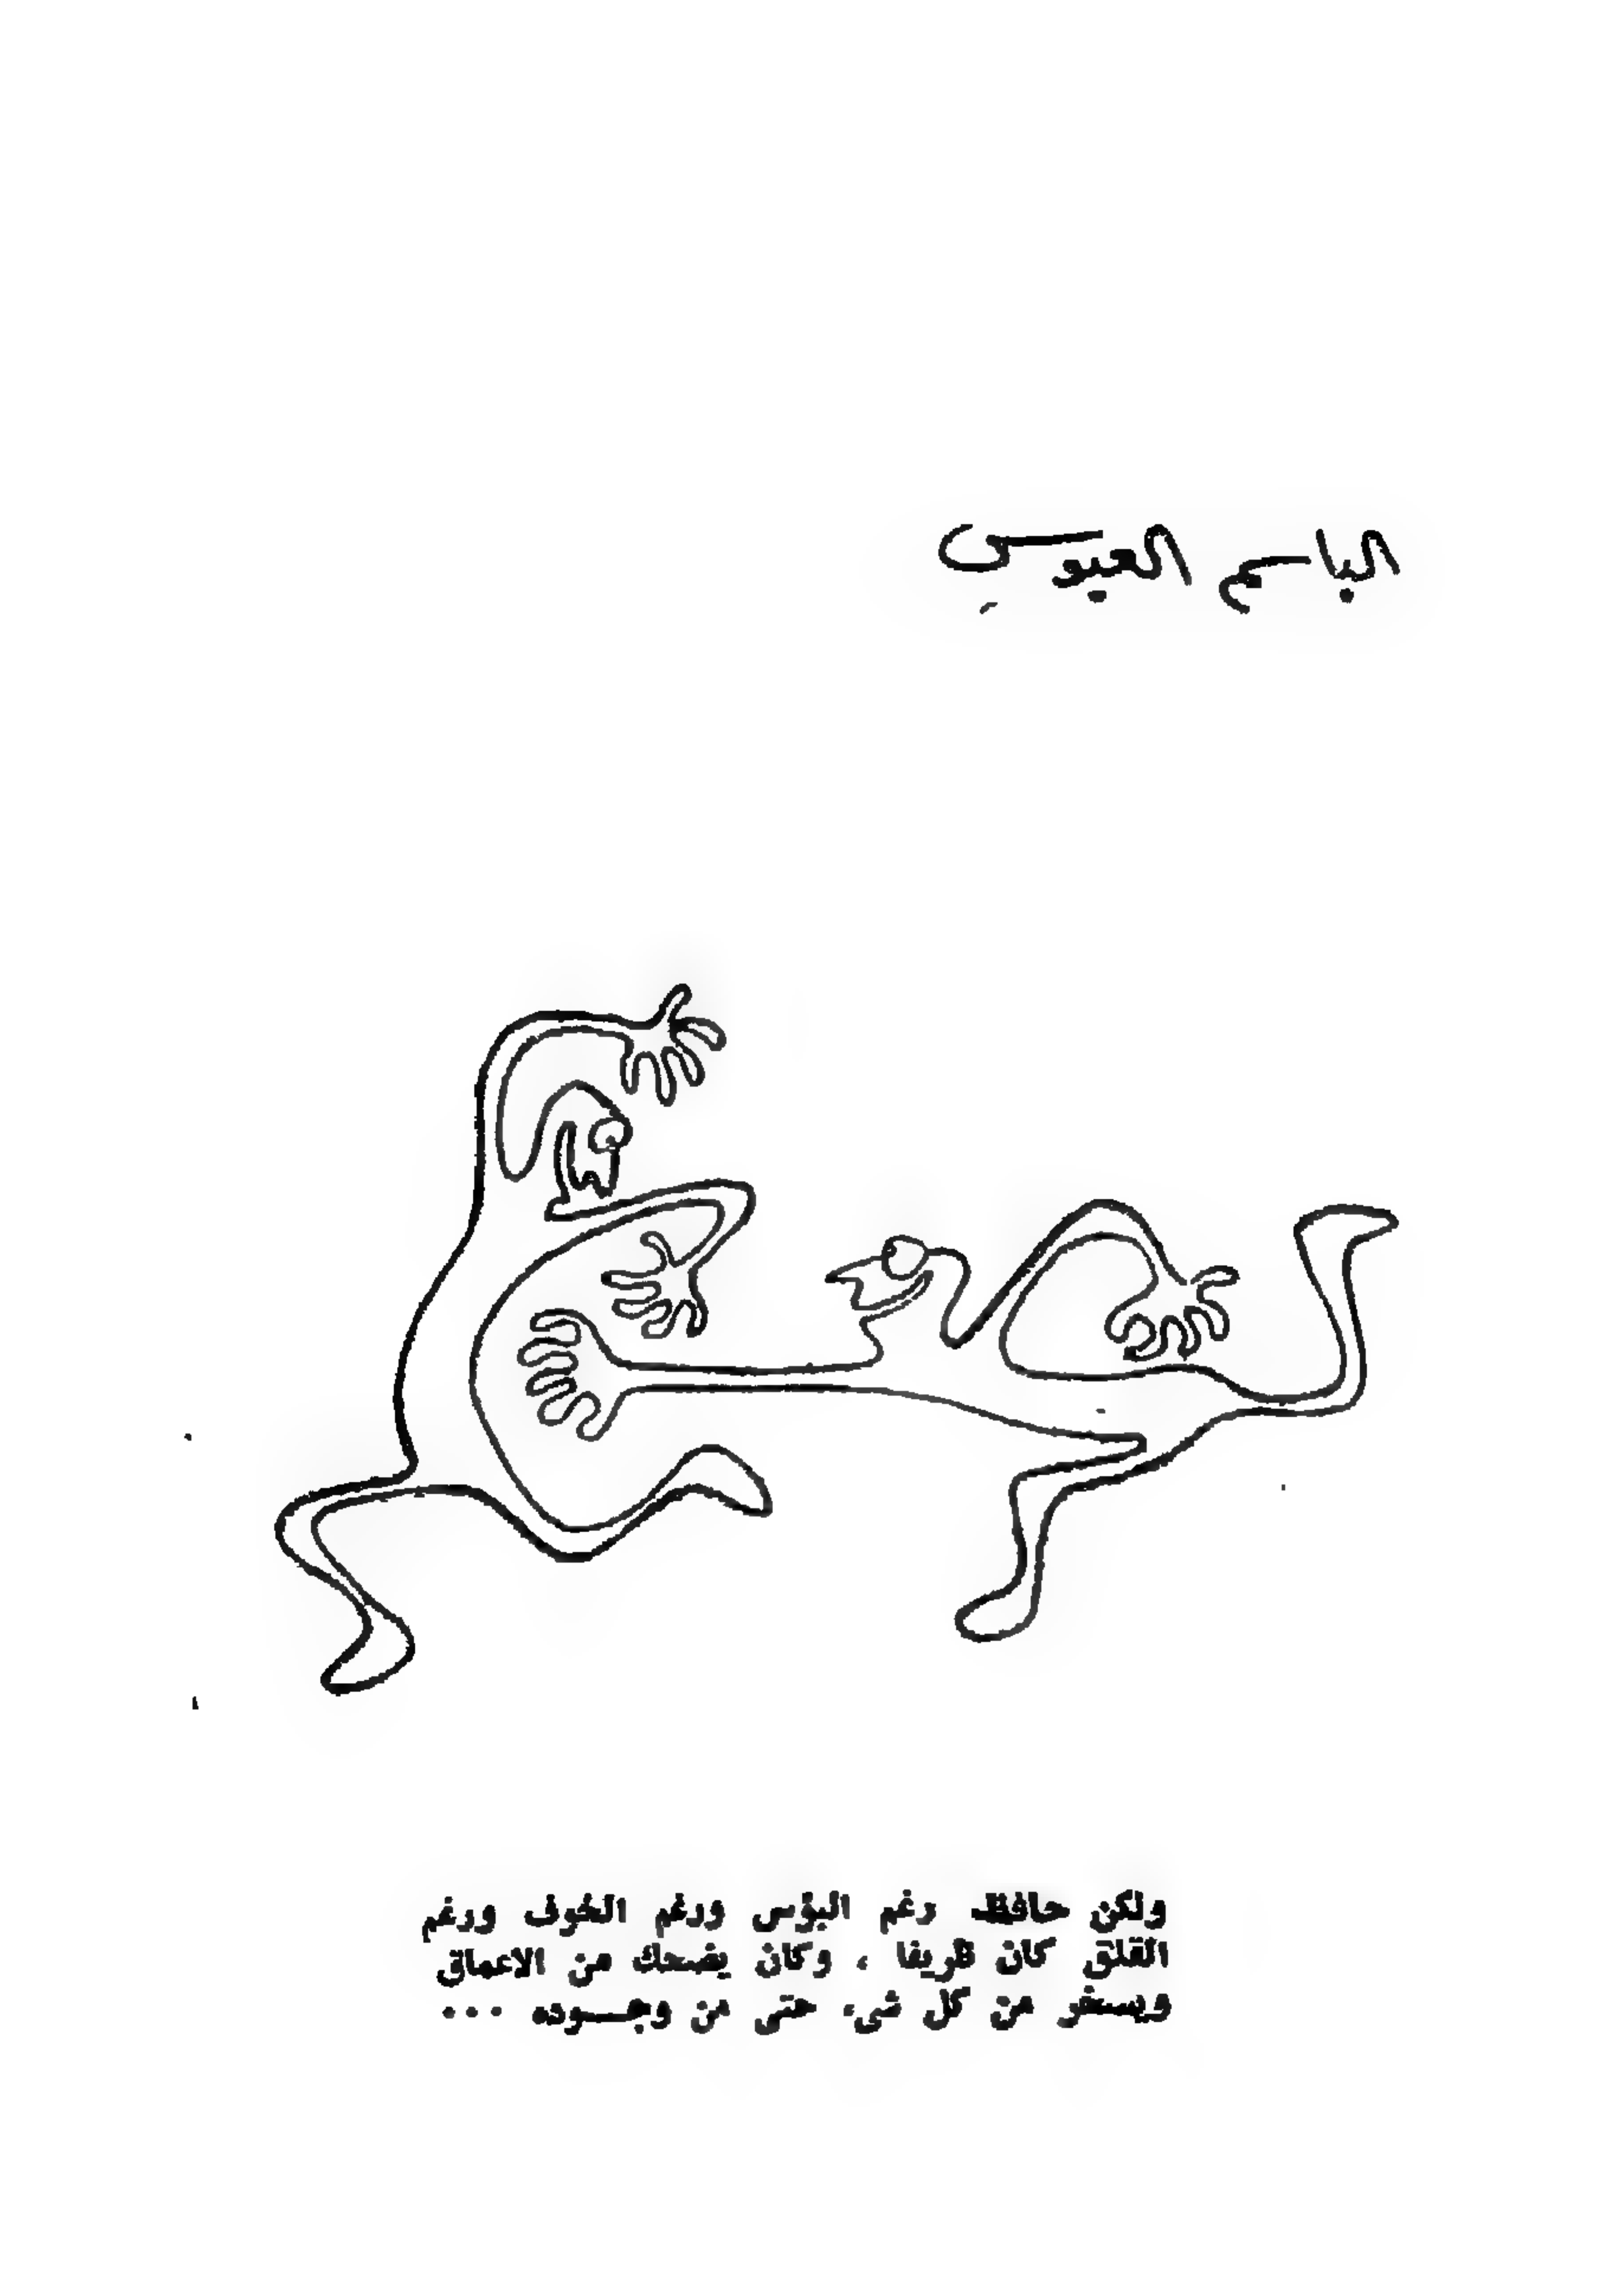 الباسم العبوس
ولكن حافظ رغم البؤس ورغم الخوف ورغم
القلق كان ظريفا ، وكان يضحك من الاعماق
ويسخر من كل شىء حتى من وجــوده ...